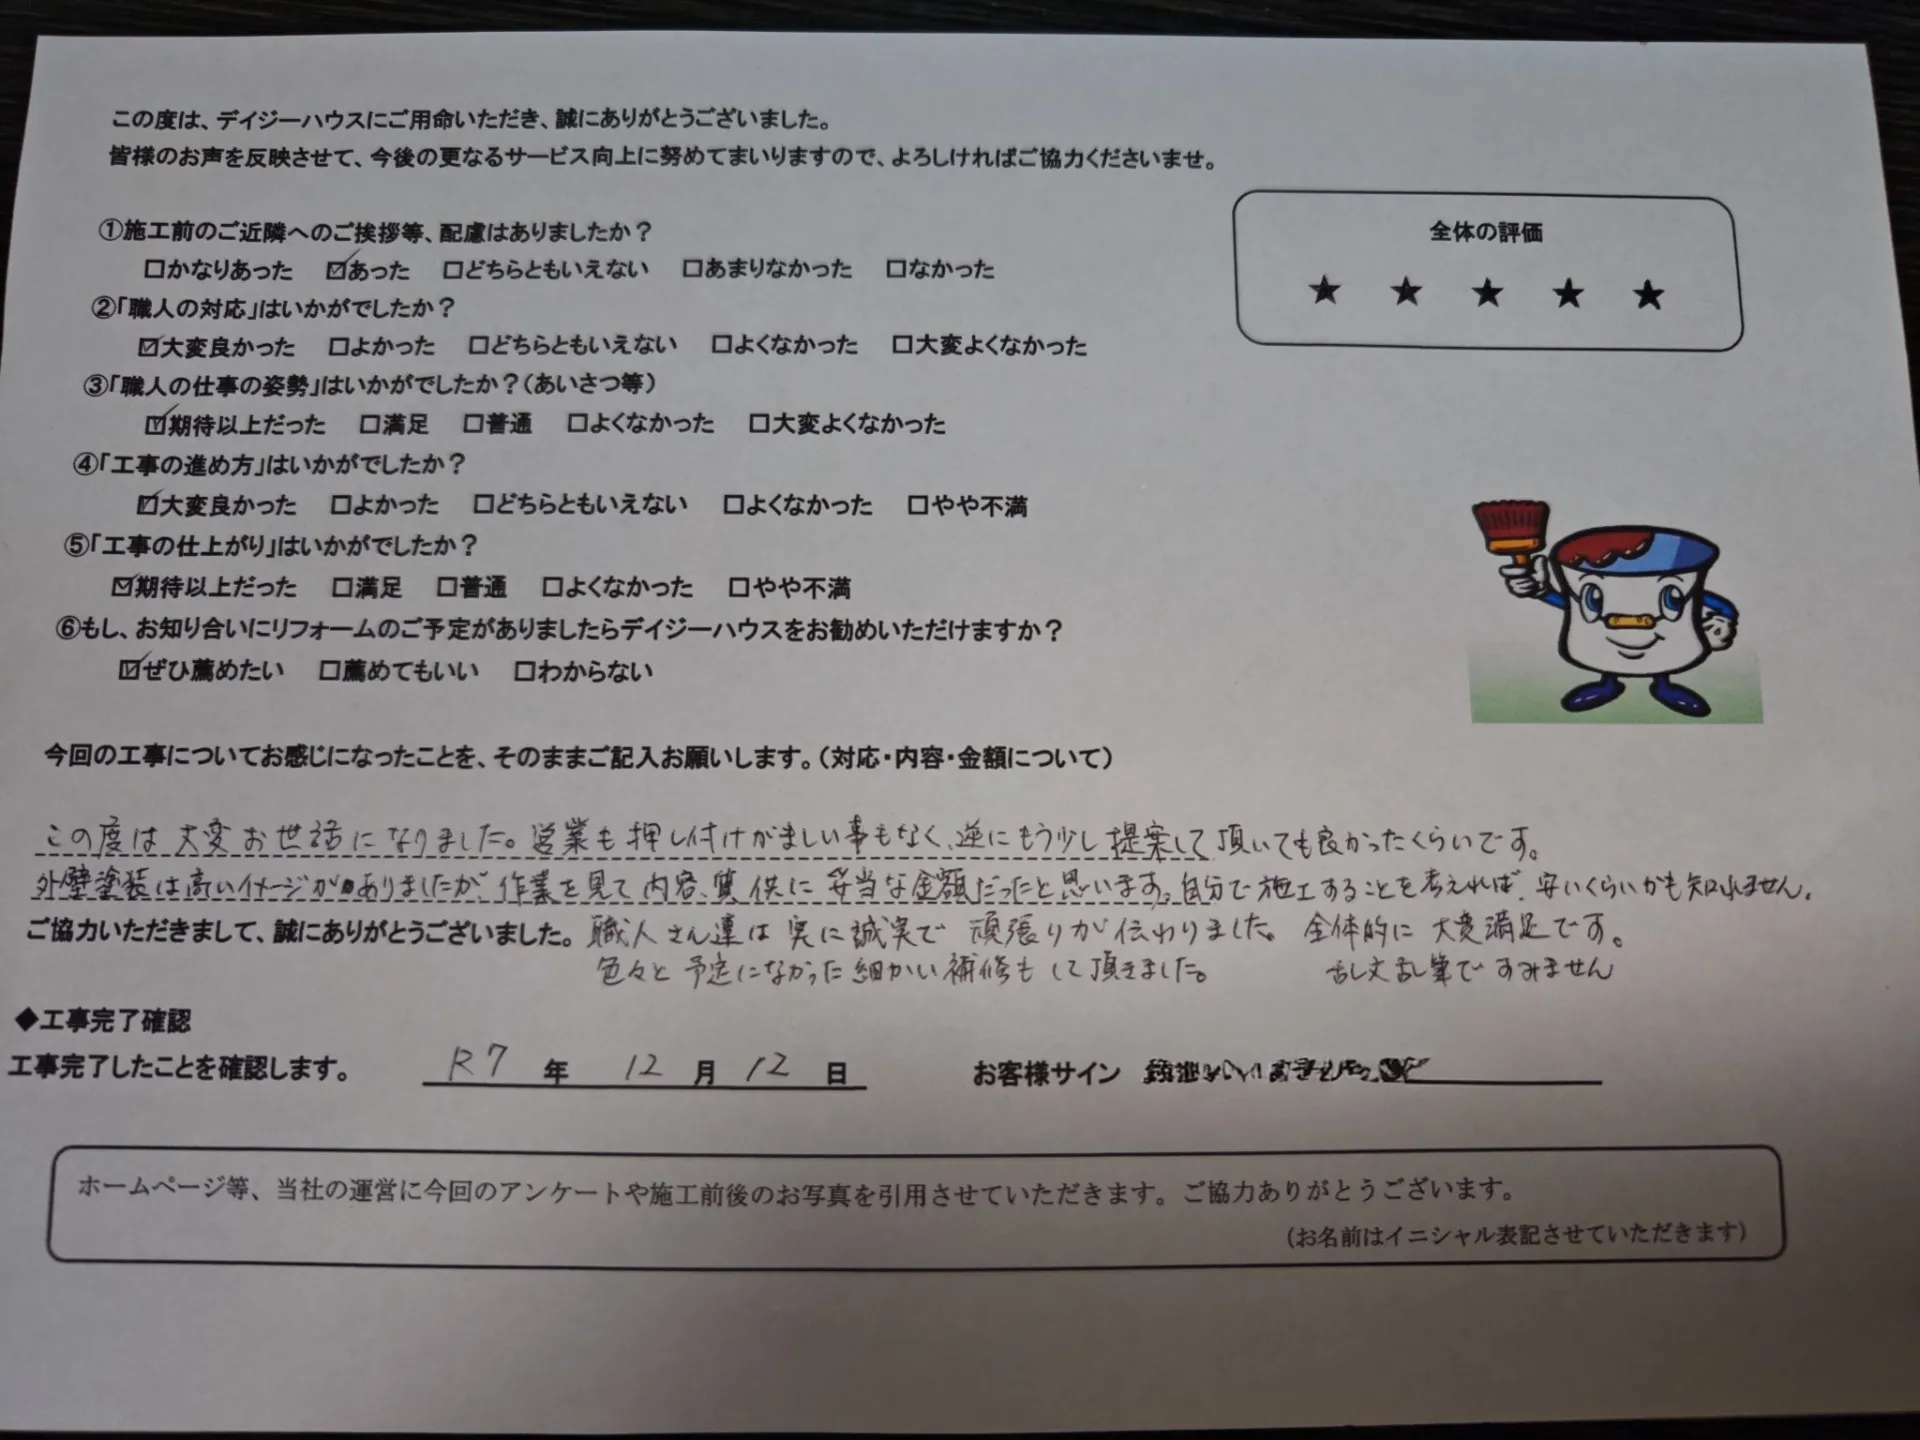 この度は、デイジーハウスにご用命いただき、誠にありがとうございました。
皆様のお声を反映させて、今後の更なるサービス向上に努めてまいりますので、よろしければご協力くださいませ。
全体の評価
★ ★ ★ ★ ★
①施工前のご近隣へのご挨拶等、配慮はありましたか？
□かなりあった ☑あった □どちらともいえない □あまりなかった □なかった
②「職人の対応」はいかがでしたか？
☑大変良かった □よかった □どちらともいえない □よくなかった □大変よくなかった
③「職人の仕事の姿勢」はいかがでしたか？（あいさつ等）
☑期待以上だった □満足 □普通 □よくなかった □大変よくなかった
④「工事の進め方」はいかがでしたか？
☑大変良かった □よかった □どちらともいえない □よくなかった □やや不満
⑤「工事の仕上がり」はいかがでしたか？
☑期待以上だった □満足 □普通 □よくなかった □やや不満
⑥もし、お知り合いにリフォームのご予定がありましたらデイジーハウスをお勧めいただけますか？
☑ぜひ薦めたい □薦めてもいい □わからない
今回の工事についてお感じになったことを、そのままご記入お願いします。（対応・内容・金額について）
この度は大変お世話になりました。営業も押し付けがましい事もなく、逆にもう少し提案して頂いても良かったくらいです。
外壁塗装は高いイメージがありましたが、作業を見て内容、質、供に妥当な金額だったと思います。自分で施工することを考えれば、安いくらいかも知れません。
ご協力いただきまして、誠にありがとうございました。 職人さん達は実に誠実で頑張りが伝わりました。全体的に大変満足です。
色々と予定になかった細かい補修もして頂きました。 乱文乱筆ですみません
◆工事完了確認
工事完了したことを確認します。 R7 年 12 月 12 日 お客様サイン
ホームページ等、当社の運営に今回のアンケートや施工前後のお写真を引用させていただきます。ご協力ありがとうございます。
（お名前はイニシャル表記させていただきます）